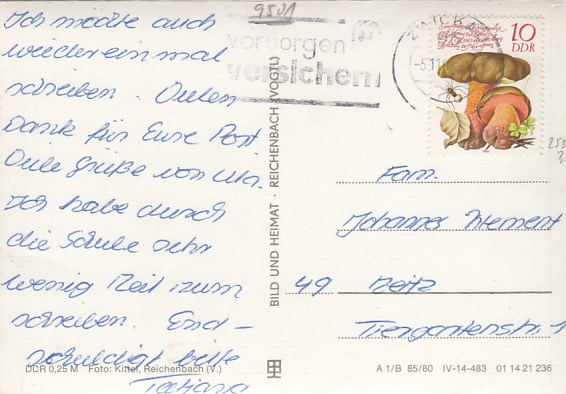 Ich möchte auch
wieder einmal
schreiben. Vielen
Dank für Eure Post
Viele grüße von Uta.
Ich habe durch
die Schule sehr
wenig Zeit zum
schreiben. End-
schuldigt bitte
Tatjana
9501
vorsorgen
versichern
ZWICK
-5.11
10
DDR
BILD UND HEIMAT · REICHENBACH (VOGTL)
Fam.
Johannes
49 Zeitz
Tiergartenstr. 1
DDR 0,25 M Foto: Kittel, Reichenbach (V.)
A 1/B 85/80 IV-14-483 01 14 21 236